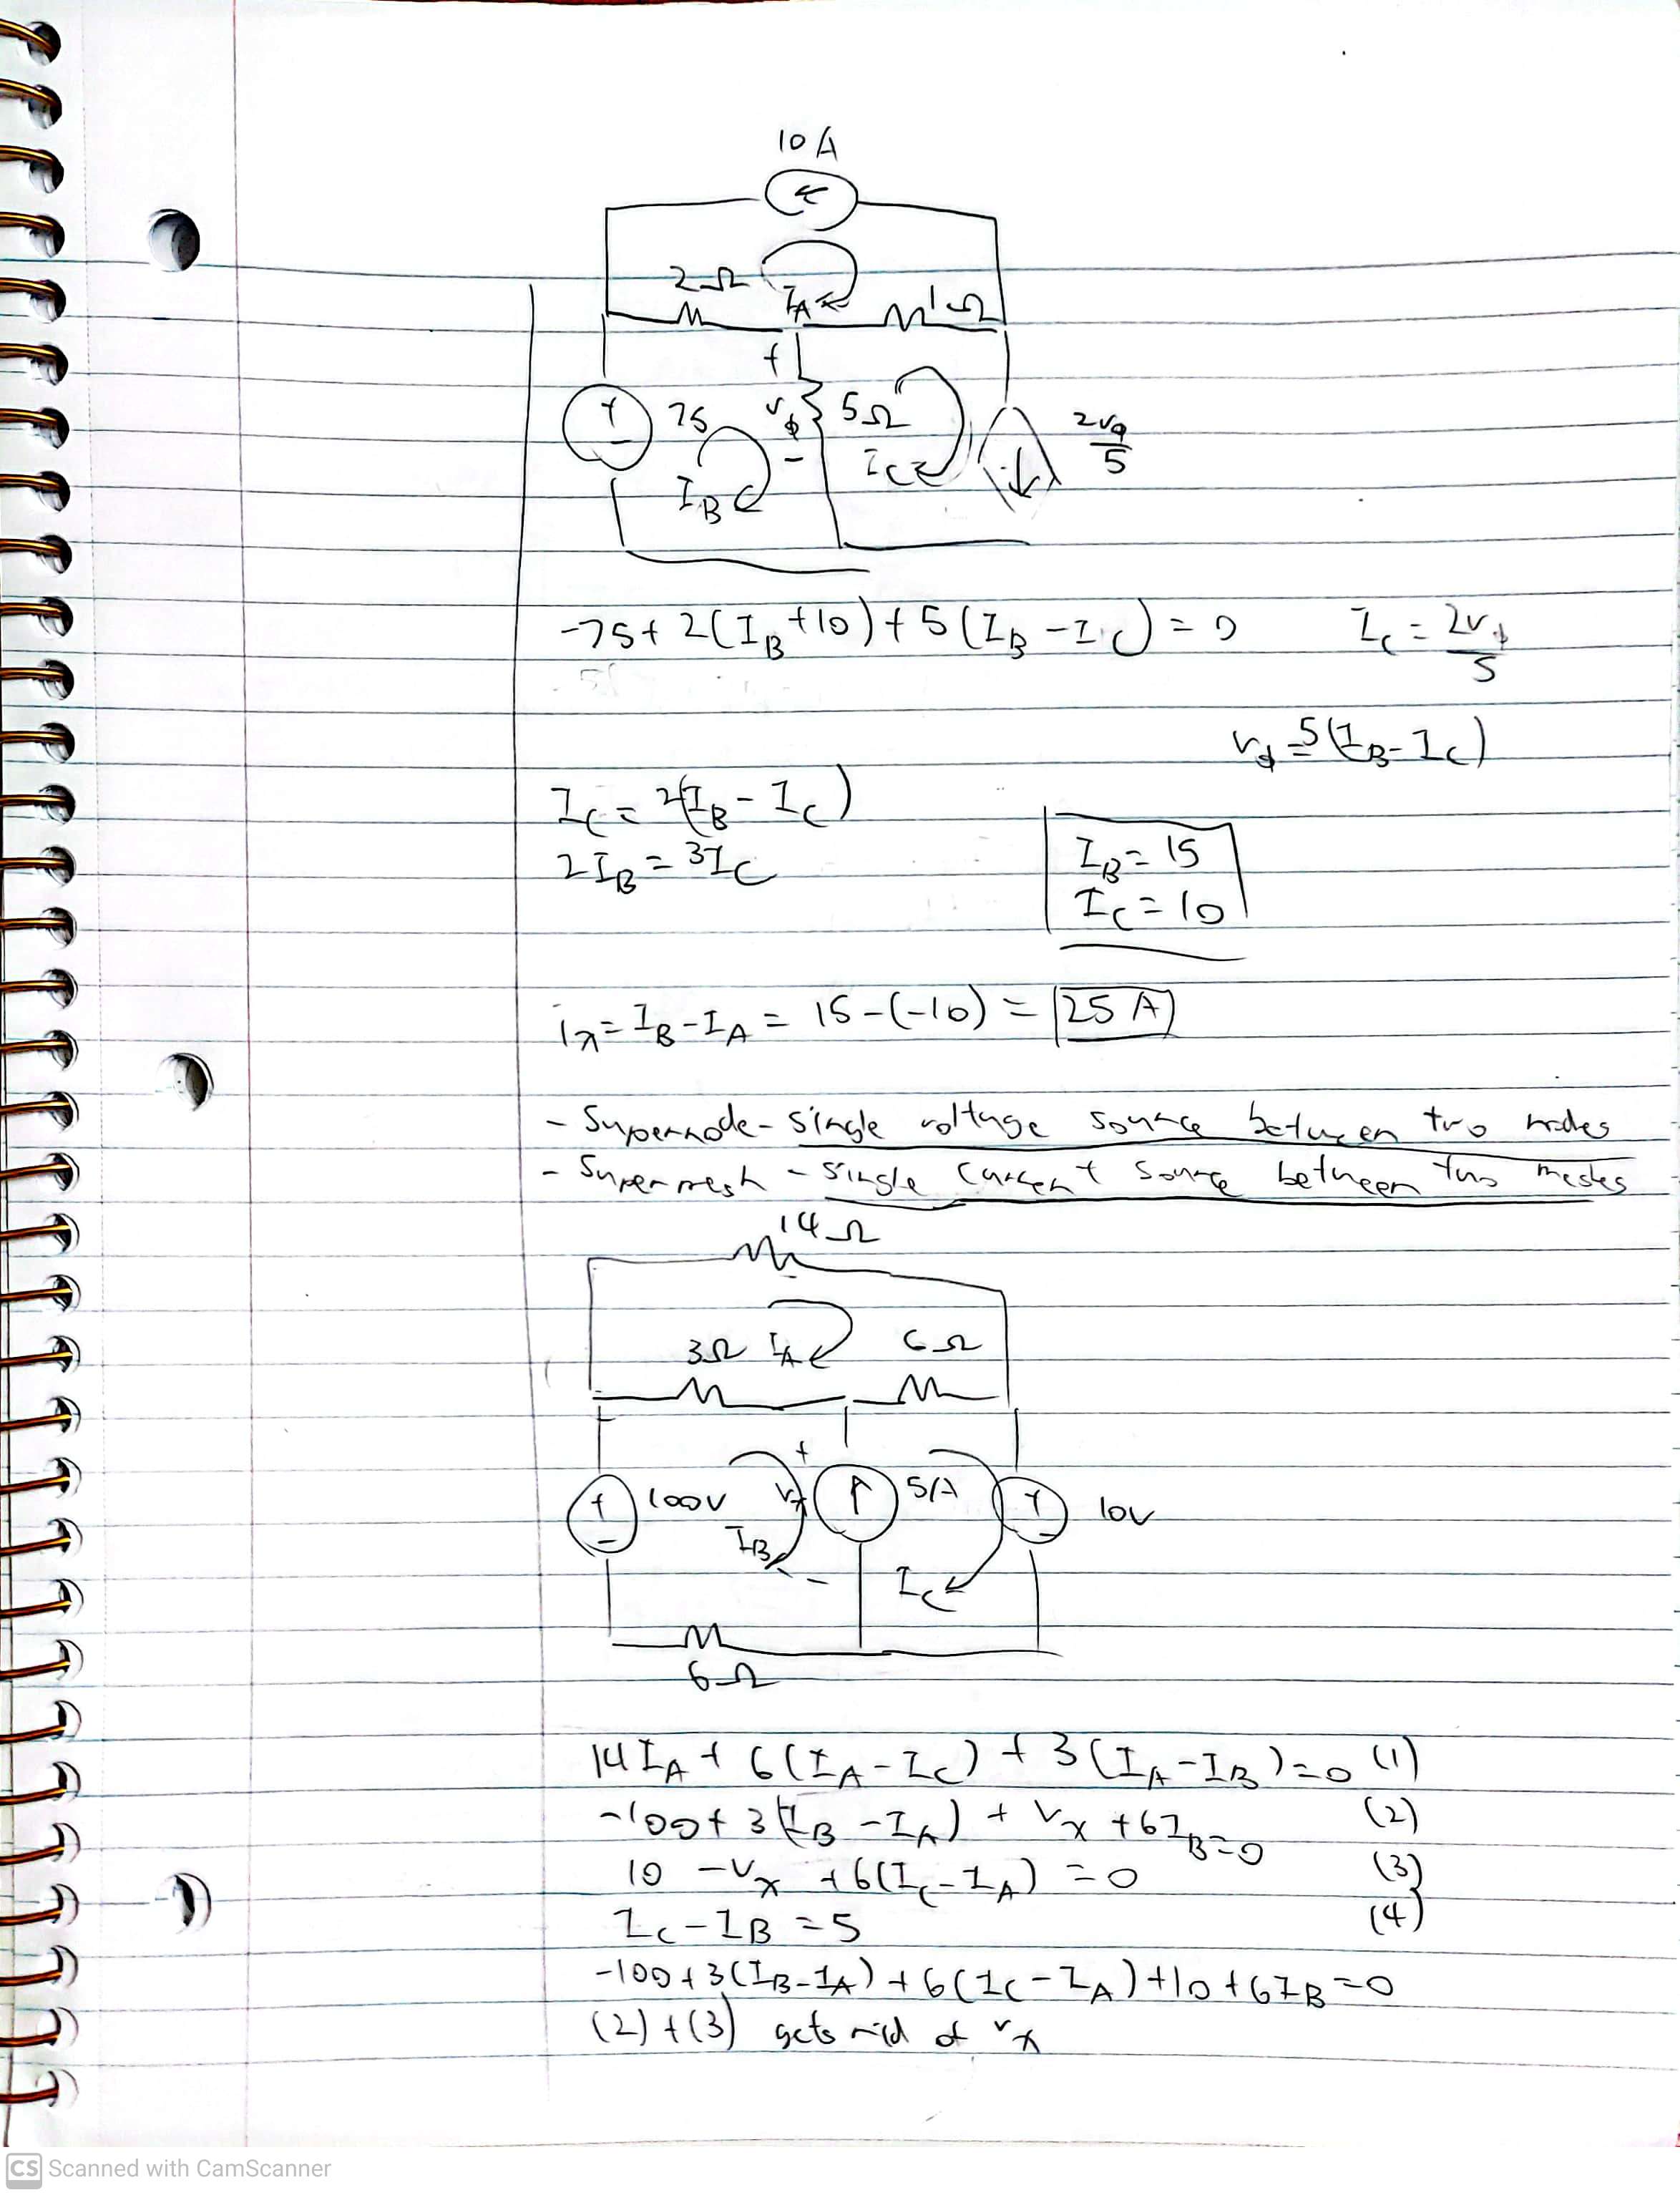 10 A
←
2Ω
I_A
1Ω
+
+
-
75
v_ϕ
-
5Ω
2v_ϕ/5
I_B
I_C
↓
-75 + 2(I_B + 10) + 5(I_B - I_C) = 0 I_C = 2v_ϕ/5
v_ϕ = 5(I_B - I_C)
I_C = 2(I_B - I_C)
2I_B = 3I_C
I_B = 15
I_C = 10
i_x = I_B - I_A = 15 - (-10) = 25 A
- Supernode - single voltage source between two nodes
- Supermesh - single current source between two meshes
14Ω
3Ω I_A 6Ω
+
-
100V
I_B
+
v_x
-
↑
5A
I_C
+
-
10V
6Ω
14I_A + 6(I_A - I_C) + 3(I_A - I_B) = 0 (1)
-100 + 3(I_B - I_A) + v_x + 6I_B = 0 (2)
10 - v_x + 6(I_C - I_A) = 0 (3)
I_C - I_B = 5 (4)
-100 + 3(I_B - I_A) + 6(I_C - I_A) + 10 + 6I_B = 0
(2) + (3) gets rid of v_x
CS Scanned with CamScanner